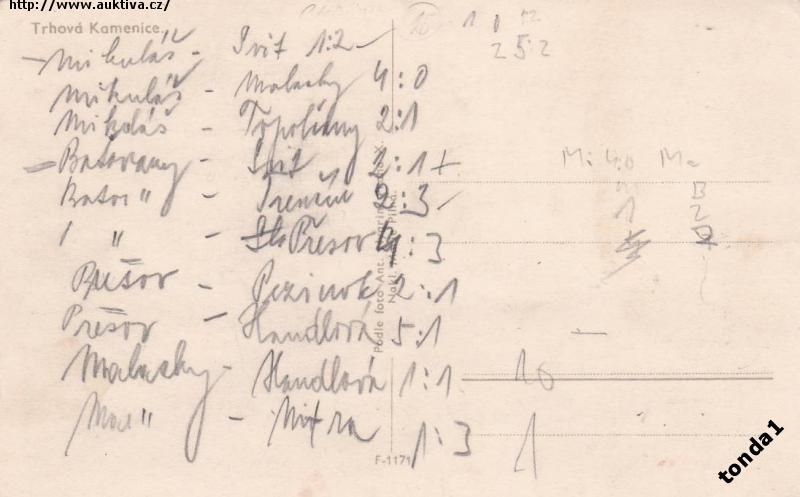 http://www.auktiva.cz/
Trhová Kamenice.
Mikuláš - Svit 1:2 -
Mikuláš - Malacky 4:0
Mikuláš - Topolčany 2:1
Baťovany - Svit 2:1 +
Baťov " - Trenčín 2:3 -
" - Prešov 4:3
Prešov - Pezinok 2:1
Prešov - Handlová 5:1
Malacky - Handlová 1:1
Mal " - Nitra 1:3
10
1 0
2 5:2
Mi 4:0 Ma
B
1 2
10
1
Podle foto Ant.
Nakl.
F-1171
tonda1